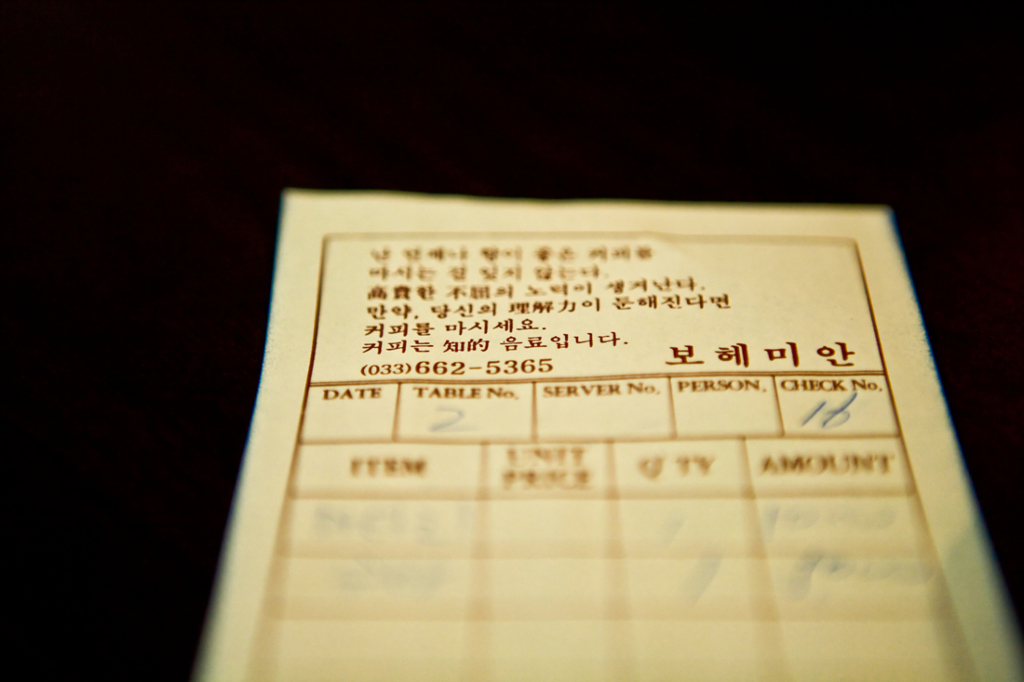 난 언제나 향이 좋은 커피를
마시는 걸 잊지 않는다.
高貴한 不屈의 노력이 생겨난다.
만약, 당신의 理解力이 둔해진다면
커피를 마시세요.
커피는 知的 음료입니다.
(033)662-5365 보헤미안
DATE TABLE No. SERVER No. PERSON. CHECK No.
2 16
ITEM UNIT PRICE Q'TY AMOUNT